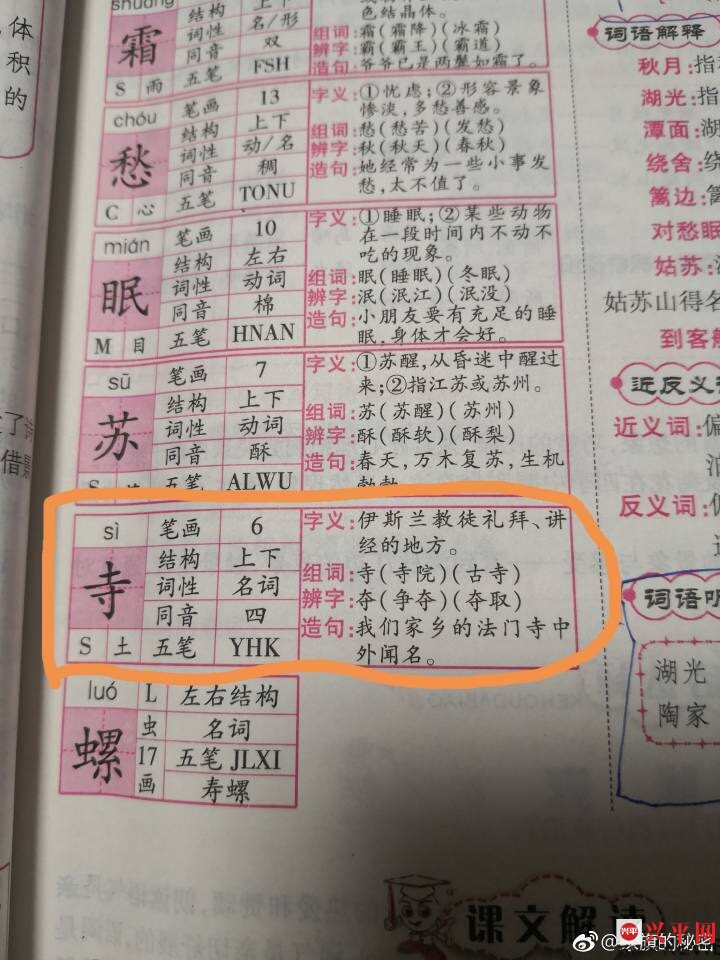 体
积
的
shuāng
霜
S 雨
结构 上下
词性 名/形
同音 双
五笔 FSH
色结晶体。
组词:霜(霜降)(冰霜)
辨字:霸(霸王)(霸道)
造句:爷爷已是两鬓如霜了。
chóu
愁
C 心
笔画 13
结构 上下
词性 动/名
同音 稠
五笔 TONU
字义:①忧虑;②形容景象
惨淡,多愁善感。
组词:愁(愁苦)(发愁)
辨字:秋(秋天)(春秋)
造句:她经常为一些小事发
愁,太不值了。
mián
眠
M 目
笔画 10
结构 左右
词性 动词
同音 棉
五笔 HNAN
字义:①睡眠;②某些动物
在一段时间内不动不
吃的现象。
组词:眠(睡眠)(冬眠)
辨字:泯(泯江)(泯没)
造句:小朋友要有充足的睡
眠,身体才会好。
sū
苏
S
笔画 7
结构 上下
词性 动词
同音 酥
五笔 ALWU
字义:①苏醒,从昏迷中醒过
来;②指江苏或苏州。
组词:苏(苏醒)(苏州)
辨字:酥(酥软)(酥梨)
造句:春天,万木复苏,生机
勃勃
sì
寺
S 土
笔画 6
结构 上下
词性 名词
同音 四
五笔 YHK
字义:伊斯兰教徒礼拜、讲
经的地方。
组词:寺(寺院)(古寺)
辨字:夺(争夺)(夺取)
造句:我们家乡的法门寺中
外闻名。
luó
螺
L 左右结构
虫 名词
17画 五笔 JLXI
寿螺
词语解释
秋月:指
湖光:指
潭面:湖
绕舍:绕
篱边:篱
对愁眠
姑苏:
姑苏山得名
到客船
近反义
近义词:偏
反义词:
词语听
湖光
陶家
课文解读
兴平网
的秘密